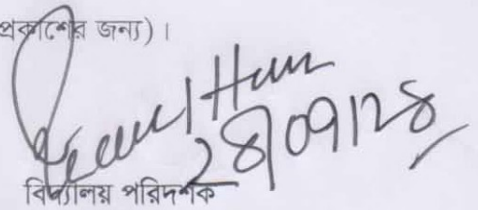 প্রকাশের জন্য)।
28/09/25
বিদ্যালয় পরিদর্শক